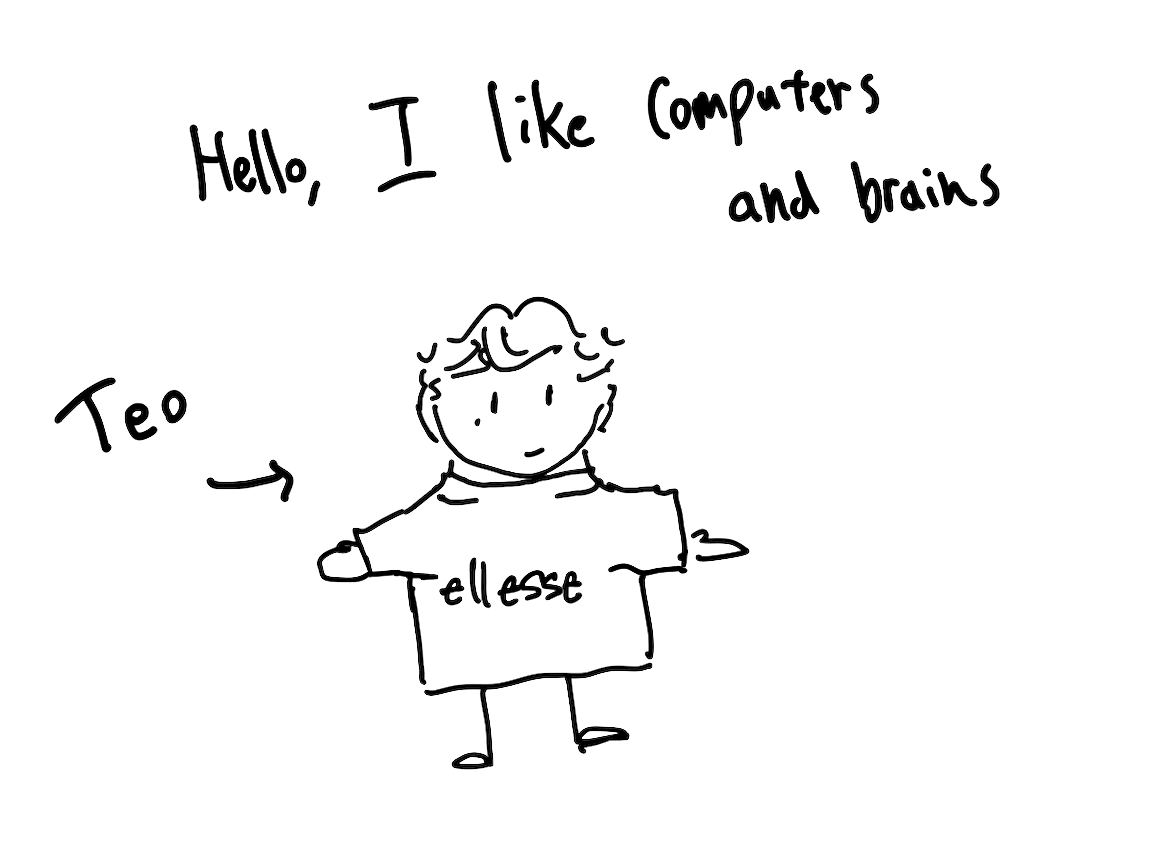 Hello, I like Computers
and brains
Teo
ellesse